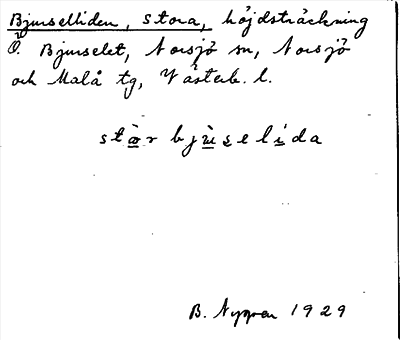 Bjurselliden, stora, höjdsträckning
Ö. Bjurselet, Norsjö sn, Norsjö
och Malå tg, Västerb. l.
stòr bjùselìda
B. Nygren 1929